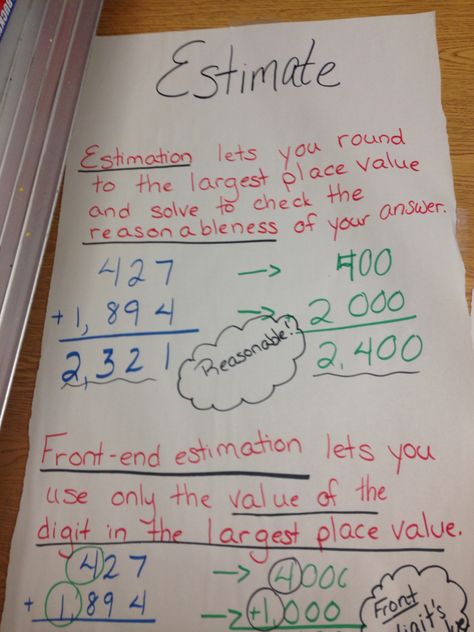 Estimate
Estimation lets you round
to the largest place value
and solve to check the
reasonableness of your answer.
427 → 400
+ 1,894 → 2 000
2,321 Reasonable! 2,400
Front-end estimation lets you
use only the value of the
digit in the largest place value.
427 → 4000
+ 1,894 → +1,000
Front
digit's